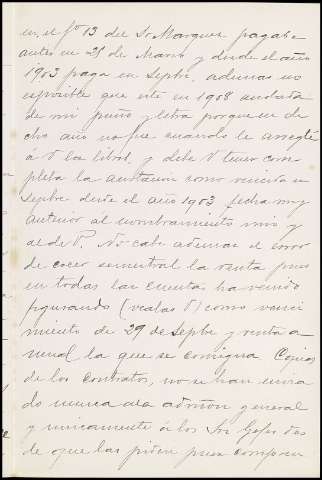 en el fº 13 del Sr Marques pagaba
antes en 25 de Marzo y desde el año
1903 paga en Septbre, ademas no
es posible que este en 1908 anotada
de mi puño y letra porque en
dho año no fue cuando le arreglé
á V los libros, y debe V tener com-
pleta la anotacion como vencido en
Septbre desde el año 1903 fecha muy
anterior al nombramiento mio y
al de V. No cabe ademas el error
de creer semestral la renta pues
en todas las cuentas ha venido
figurando (vealas V) como venci
miento de 29 de Septbre y renta a-
nual la que se consigna Copias
de los contratos, no se han envia
do nunca a la admon general
y unicamente á los Sres Gefes
de que las piden para